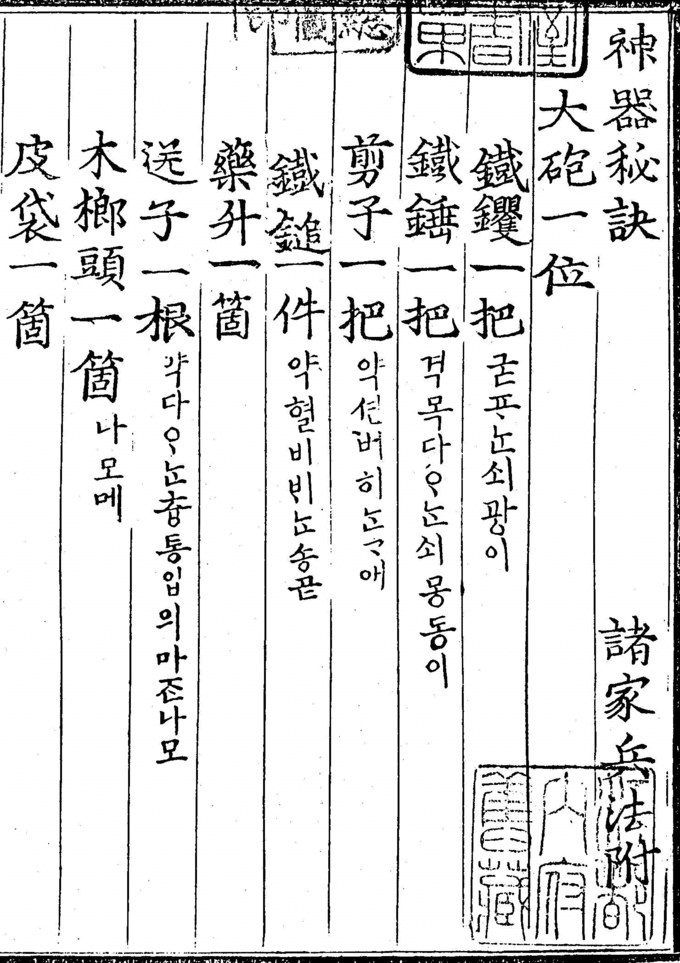 神器秘訣 諸家兵法附
大砲一位
鐵钁一把 굳ᄑᆞᄂᆞᆫ쇠광이
鐵錘一把 격목다ᄋᆞᄂᆞᆫ쇠몽동이
剪子一把 약션버히ᄂᆞᆫᄀᆞ애
鐵鎚一件 약혈비븨ᄂᆞᆫ송곧
藥升一箇
送子一根 약다ᄋᆞᄂᆞᆫ츙통입의마ᄌᆞᆫ나모
木榔頭一箇 나모메
皮袋一箇